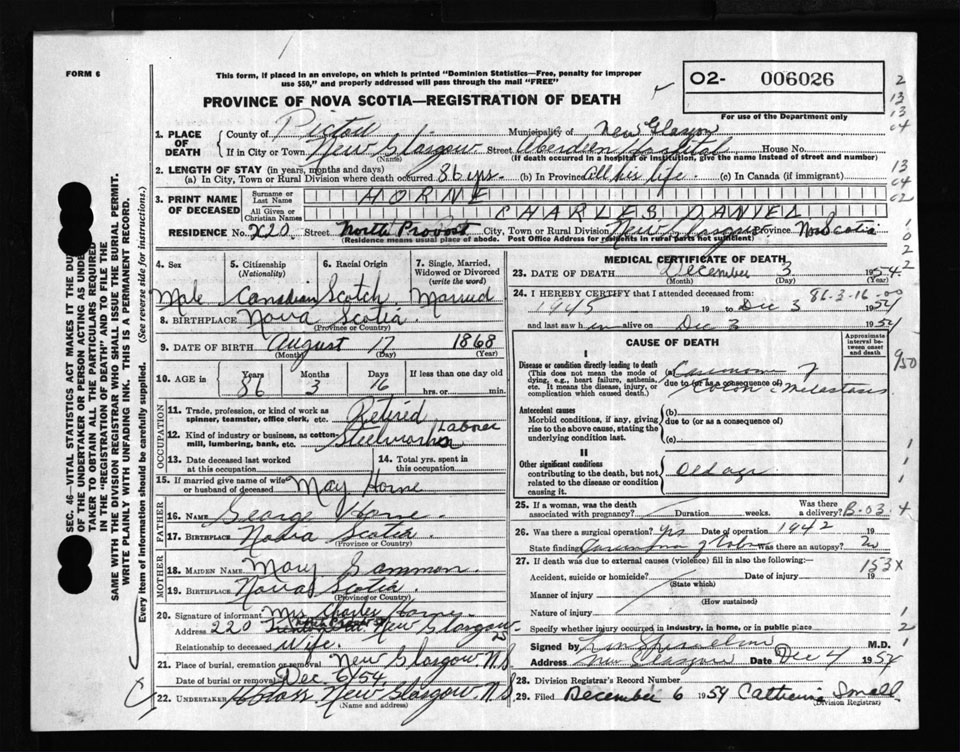 FORM 6
This form, if placed in an envelope, on which is printed "Dominion Statistics—Free, penalty for improper
use $50," and properly addressed will pass through the mail "FREE"
O2- 006026
For use of the Department only
PROVINCE OF NOVA SCOTIA—REGISTRATION OF DEATH
1. PLACE OF DEATH County of Pictou Municipality of New Glasgow
If in City or Town New Glasgow Street Aberdeen Hospital House No.
(Name) (If death occurred in a hospital or institution, give the name instead of street and number)
2. LENGTH OF STAY (in years, months and days)
(a) In City, Town or Rural Division where death occurred 86 yrs. (b) In Province all his life. (c) In Canada (if immigrant)
3. PRINT NAME OF DECEASED Surname or Last Name HORNE
All Given or Christian Names CHARLES DANIEL
RESIDENCE No. 220 Street North Provost City, Town or Rural Division New Glasgow Province Nova Scotia
(Residence means usual place of abode. Post Office Address for residents in rural parts not sufficient)
4. Sex 5. Citizenship (Nationality) 6. Racial Origin 7. Single, Married, Widowed or Divorced (write the word)
Male Canadian Scotch Married
8. BIRTHPLACE Nova Scotia
(Province or Country)
9. DATE OF BIRTH August 17 1868
(Month) (Day) (Year)
10. AGE in Years Months Days If less than one day old
86 3 16 hrs. or min.
OCCUPATION
11. Trade, profession, or kind of work as spinner, teamster, office clerk, etc. Retired Laborer
12. Kind of industry or business, as cotton-mill, lumbering, bank, etc. Steelworker
13. Date deceased last worked at this occupation 14. Total yrs. spent in this occupation
15. If married give name of wife or husband of deceased May Horne
FATHER
16. NAME George Horne
17. BIRTHPLACE Nova Scotia
(Province or Country)
MOTHER
18. MAIDEN NAME Mary Sammon
19. BIRTHPLACE Nova Scotia
(Province or Country)
20. Signature of informant Mrs Charles Horne
Address 220 New Glasgow NS
Relationship to deceased Wife.
21. Place of burial, cremation or removal New Glasgow N.S
Date of burial or removal Dec. 6/54
22. UNDERTAKER New Glasgow N.S
(Name and address)
MEDICAL CERTIFICATE OF DEATH
23. DATE OF DEATH December 3 1954
(Month) (Day) (Year)
86-3-16-00
24. I HEREBY CERTIFY that I attended deceased from:
1945 19 to Dec 3 1954
and last saw him alive on Dec 3 1954
CAUSE OF DEATH
Approximate interval between onset and death
I
Disease or condition directly leading to death (a) Carcinoma of
(This does not mean the mode of dying, e.g., heart failure, asthenia, etc. It means the disease, injury, or complication which caused death.)
due to (or as a consequence of) Colon metastasis
Antecedent causes (b)
Morbid conditions, if any, giving rise to the above cause, stating the underlying condition last.
due to (or as a consequence of)
(c)
II
Other significant conditions
contributing to the death, but not related to the disease or condition causing it.
Old age
25. If a woman, was the death associated with pregnancy? Duration weeks. Was there a delivery? B-03.4
26. Was there a surgical operation? Yes Date of operation 1942 19
State finding Carcinoma of Colon Was there an autopsy? No
27. If death was due to external causes (violence) fill in also the following:—
153X
Accident, suicide or homicide? Date of injury 19
(State which)
Manner of injury
(How sustained)
Nature of injury
Specify whether injury occurred in industry, in home, or in public place
Signed by M.D.
Address New Glasgow Date Dec 4 1954
28. Division Registrar's Record Number
29. Filed December 6 1954 Catherine Small
(Division Registrar)
SEC. 46—VITAL STATISTICS ACT MAKES IT THE DUTY
OF THE UNDERTAKER OR PERSON ACTING AS UNDERTAKER
TO OBTAIN ALL THE PARTICULARS REQUIRED
IN THE "REGISTRATION OF DEATH" AND TO FILE THE
SAME WITH THE DIVISION REGISTRAR WHO SHALL ISSUE THE BURIAL PERMIT.
WRITE PLAINLY WITH UNFADING INK. THIS IS A PERMANENT RECORD.
Every item of information should be carefully supplied. (See reverse side for instructions.)